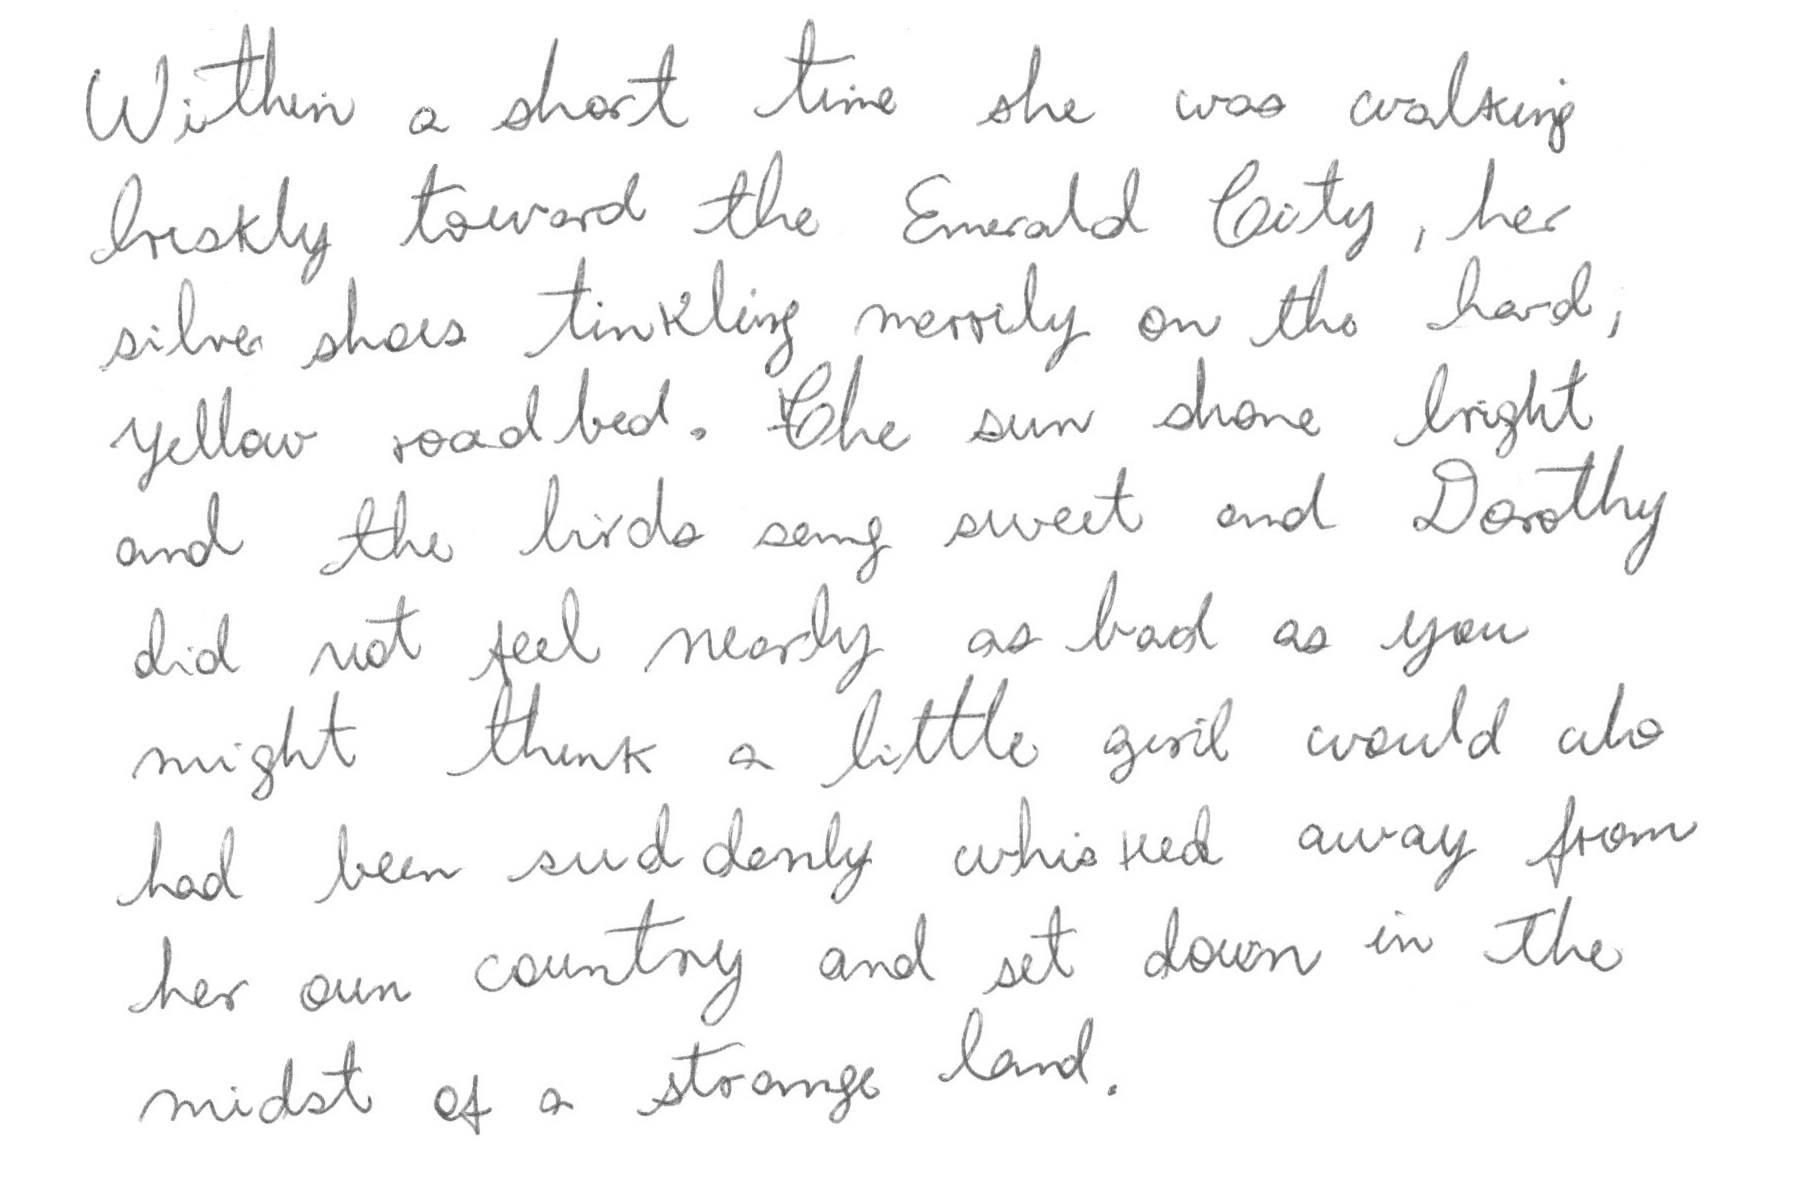 Within a short time she was walking
briskly toward the Emerald City, her
silver shoes tinkling merrily on the hard,
yellow roadbed. The sun shone bright
and the birds sang sweet and Dorothy
did not feel nearly as bad as you
might think a little girl would who
had been suddenly whisked away from
her own country and set down in the
midst of a strange land.